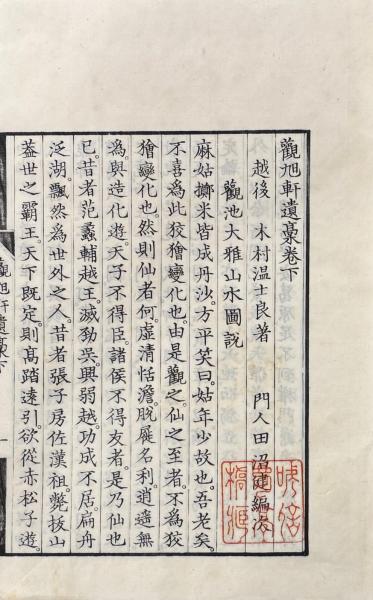 觀旭軒遺稾卷下
越後 木村温士良著 門人田沼
觀池大雅山水圖説
麻姑擲米皆成丹沙。方平笑曰。姑年少故也。吾老矣。
不喜爲此狡獪變化也。由是觀之。仙之至者。不爲狡
獪變化也。然則仙者何。虛清恬澹。脱屣名利。逍遥無
爲。與造化遊。天子不得臣。諸侯不得友者。是乃仙也
已。昔者范蠡輔越王。滅勁吳。興弱越。功成不居。扁舟
泛湖。飄然爲世外之人。昔者張子房佐漢祖。斃拔山
葢世之霸王。天下既定。則髙踏遠引。欲從赤松子遊。
觀旭軒遺稾下
一